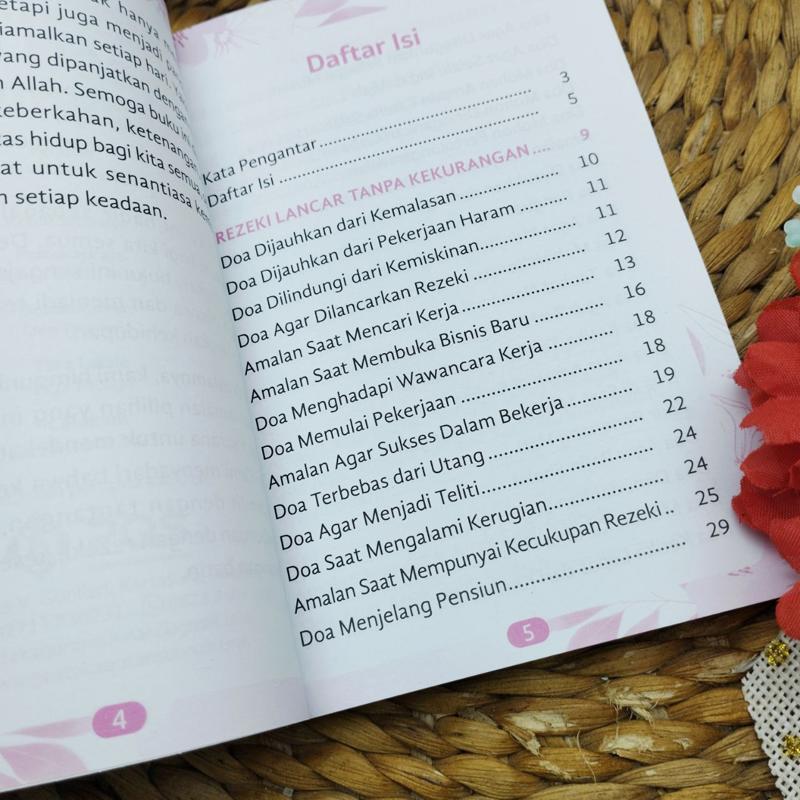 hanya
tetapi juga menjadi
diamalkan setiap hari.
yang dipanjatkan dengan
Allah. Semoga buku ini
keberkahan, ketenangan
hidup bagi kita semua
untuk senantiasa
setiap keadaan.
4
Daftar Isi
Kata Pengantar 3
Daftar Isi 5
REZEKI LANCAR TANPA KEKURANGAN 9
Doa Dijauhkan dari Kemalasan 10
Doa Dijauhkan dari Pekerjaan Haram 11
Doa Dilindungi dari Kemiskinan 11
Doa Agar Dilancarkan Rezeki 12
Amalan Saat Mencari Kerja 13
Amalan Saat Membuka Bisnis Baru 16
Doa Menghadapi Wawancara Kerja 18
Doa Memulai Pekerjaan 18
Amalan Agar Sukses Dalam Bekerja 19
Doa Terbebas dari Utang 22
Doa Agar Menjadi Teliti 24
Doa Saat Mengalami Kerugian 24
Amalan Saat Mempunyai Kecukupan Rezeki 25
Doa Menjelang Pensiun 29
5